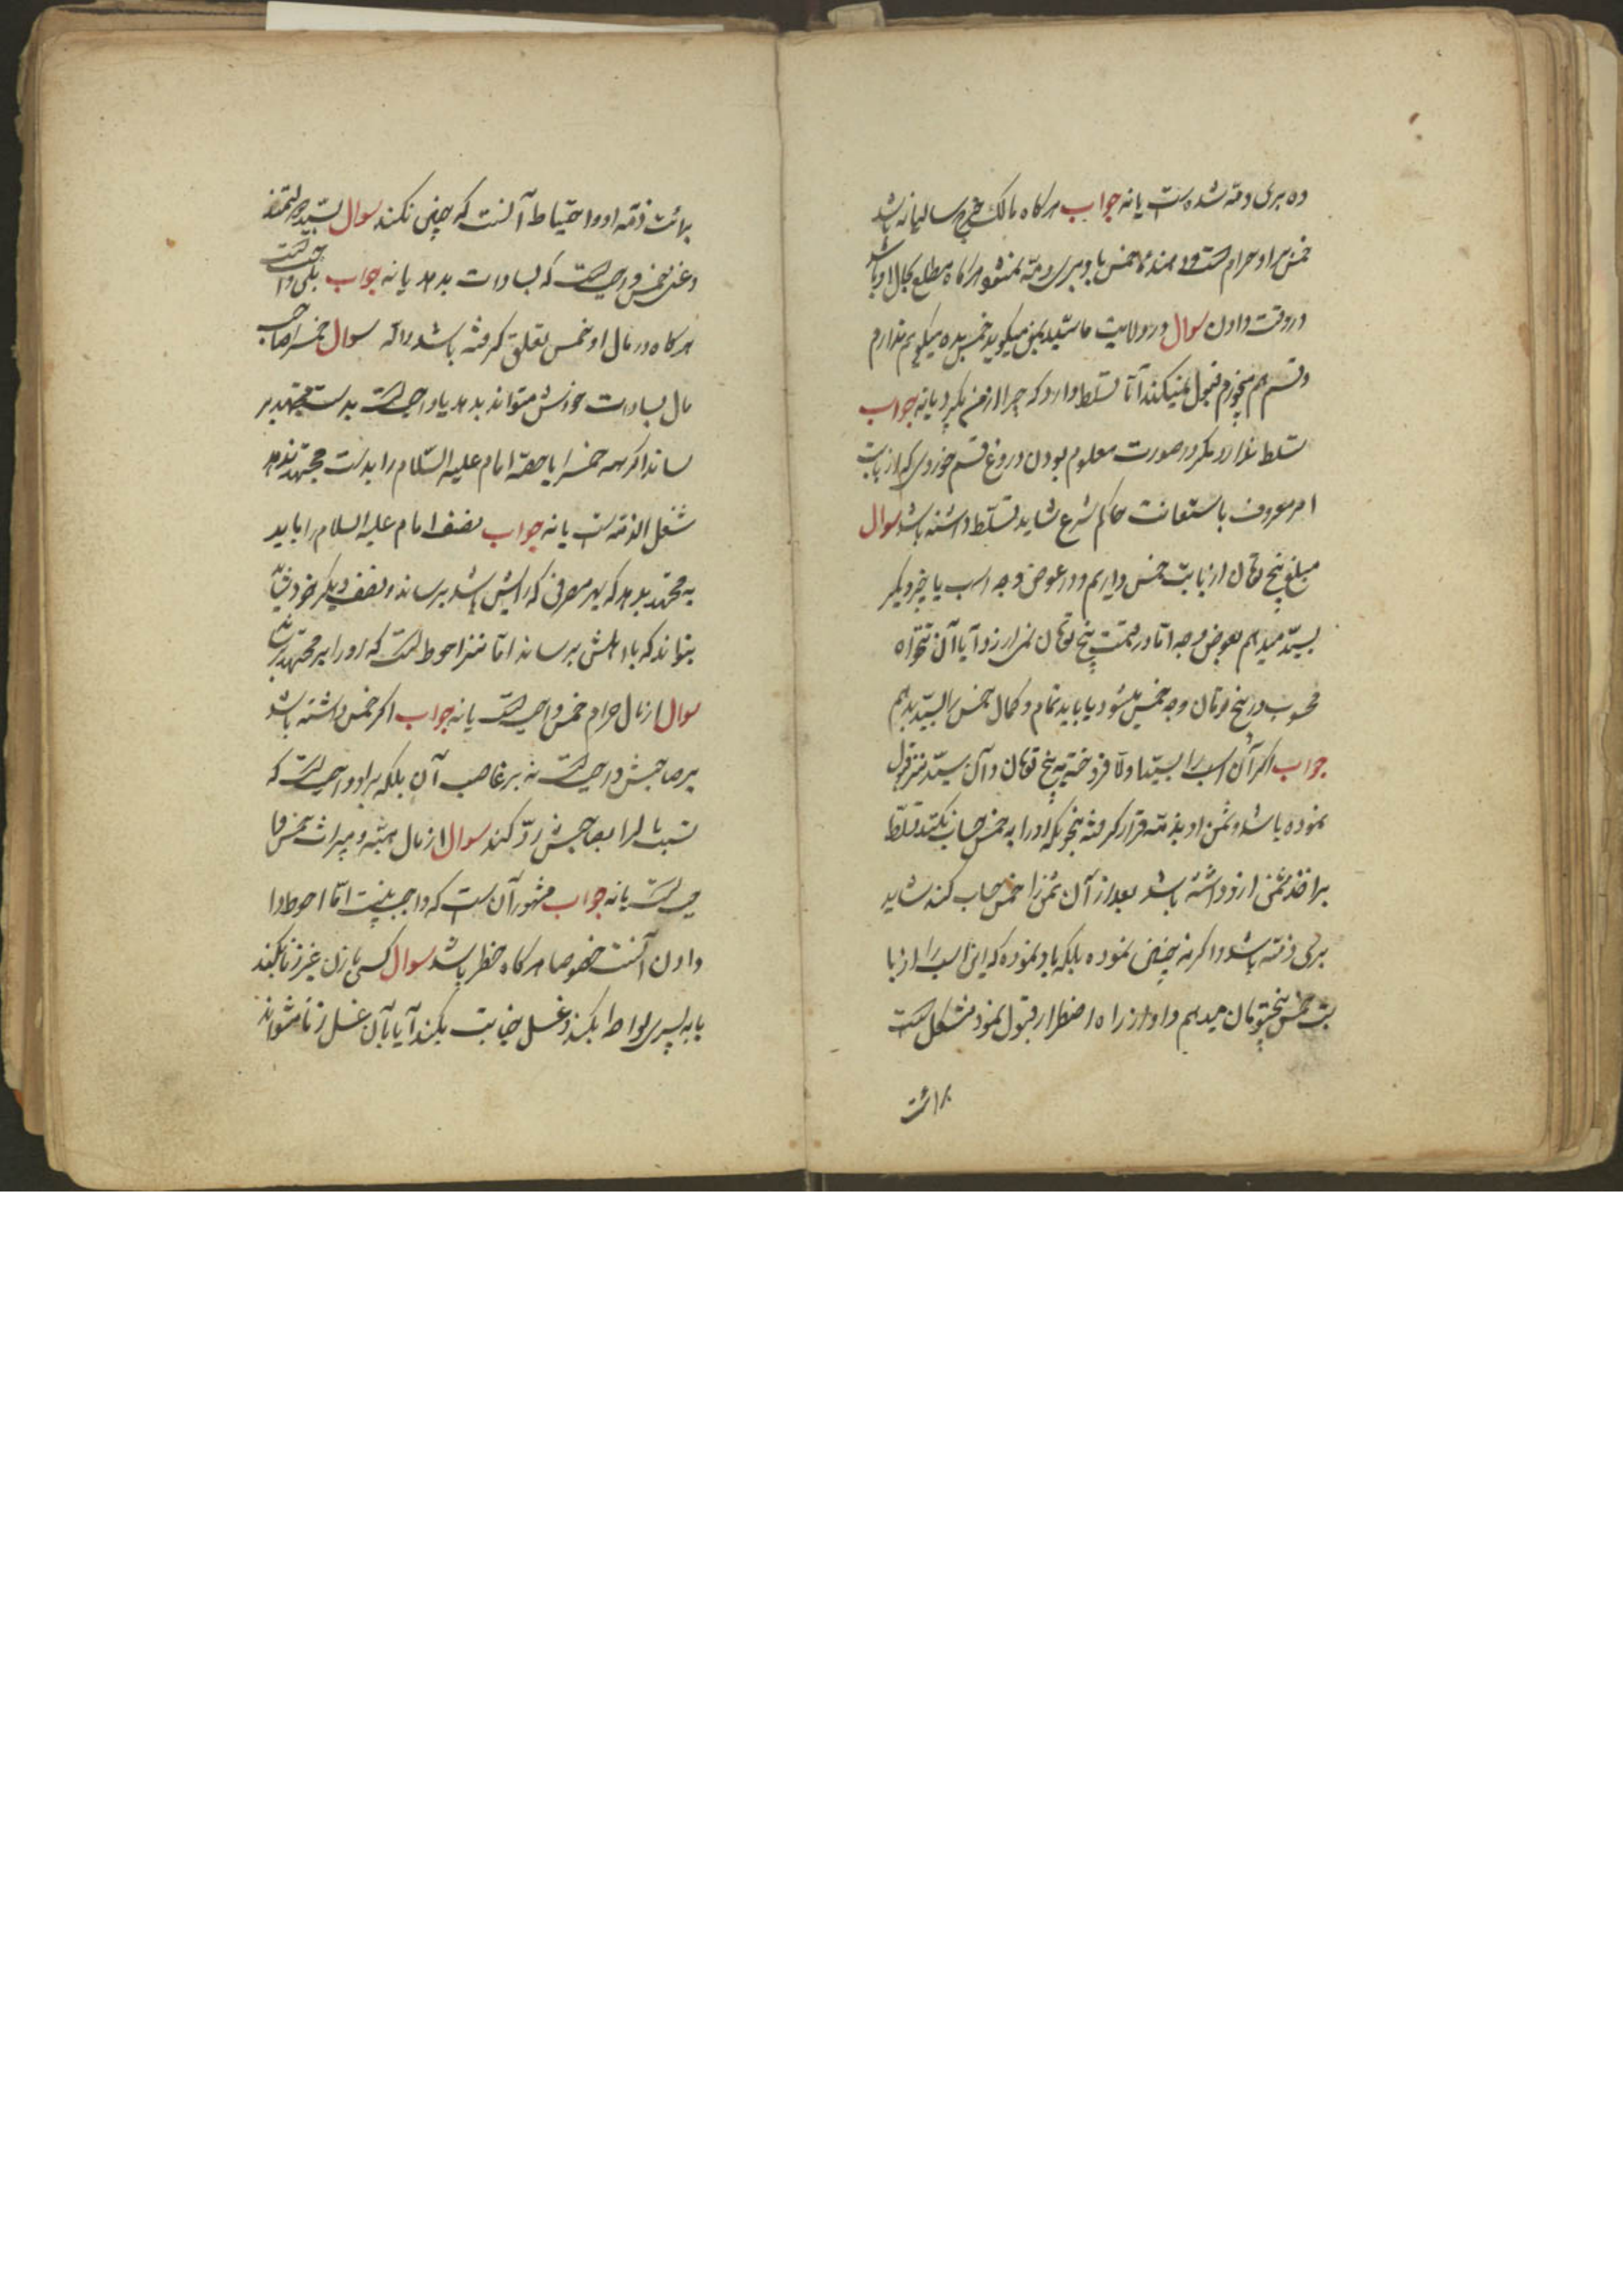 ده بری ذمه شده است یا نه جواب هرگاه مالک خرج سالیانه باشد
خمس بر او حرام است و دهنده خمس باو بری ذمه نمیشود هرگاه مطلع بحال او باشد
در وقت دادن سوال در ولایت ما سیّد بمن میگوید خمس بده میگویم ندارم
و قسم هم میخورم قبول نمیکند آیا تسلط دارد که چیزی از من بگیرد یا نه جواب
تسلط ندارد مگر در صورت معلوم بودن دروغ قسم خوردن که از باب
امر معروف باستعانت حاکم شرع شاید تسلّط داشته باشد سوال
مبلغ پنج تومان از بابت خمس داریم و در عوض وجه اسب یا چیز دیگر
بسیّد میدهم بعوض وجه اما در قیمت پنج تومان نمی ارزد آیا آن تنخواه
محسوب در پنج تومان وجه خمس میشود یا باید تمام و کمال خمس را بسیّد بدهم
جواب اگر آن اسب را بسیّد اولا فروخته به پنج تومان و آن سیّد نیز قبول
نموده باشد و ثمن او بذمّته قرار گرفته بنحویکه او را به خمس حساب نکند تسلّط
بر اخذ ثمن ازو داشته باشد بعد از آن ثمن را خمس حساب کند شاید
بری ذمّه باشد و اگر نه چنین نموده بلکه باو نموده که این اسب را از با
بت خمس پنجتومان میدهم و او از راه اضطرار قبول نمود مشکل است
برائت
برائت ذمّه او و احتیاط آنست که چنین نکند سوال بسیّد دولتمند
و غنی خمس واجب است که بسادات بدهد یا نه جواب بلی واجب است
هرگاه در مال او خمس تعلق گرفته باشد سوال خمس را صاحب
مال بسادات خودش میتواند بدهد یا واجب است بدست مجتهد بر
ساند اگر همه خمس را یا حصّه امام علیه السّلام را بدست مجتهد ندهد
مشغل الذمّه است یا نه جواب نصف امام علیه السلام را باید
به مجتهد بدهد که بهر مصرفی که رایش باشد برساند و نصف دیگر خود
بتواند که باهلش برساند اما نیز احوط است که او را بمجتهد رساند
سوال از مال حرام خمس واجب است یا نه جواب اگر خمس داشته باشد
بر صاحبش واجب است نه بر غاصب آن بلکه بر او واجب است که
بصاحبش ردّ کند سوال از مال هبه و میراث خمس وا
جب است یا نه جواب مشهور آن است که واجب نیست امّا احوط دا
دادن آنست خصوصا هرگاه خطیر باشد سوال کسی با زن غیر زنا بکند
یا به پسری لواط بکند و غسل جنابت بکند آیا بآن غسل نماز میتواند